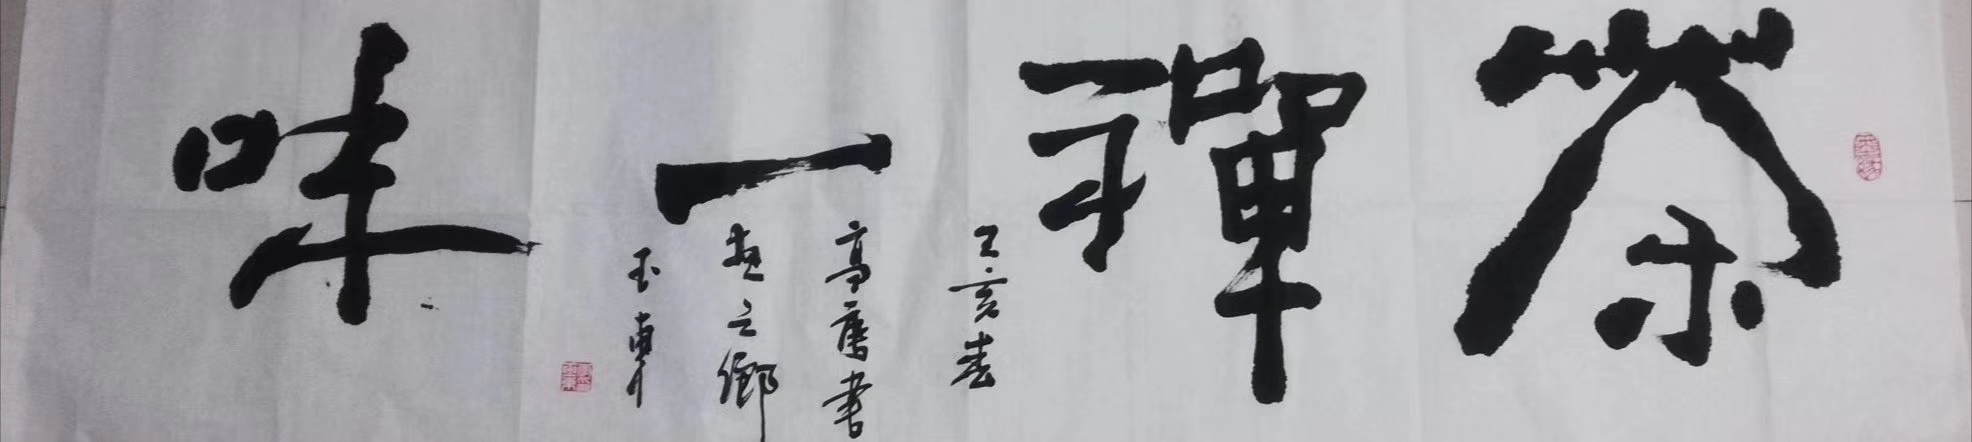 茶禪一味
己亥春
高唐書
画之鄉
玉東